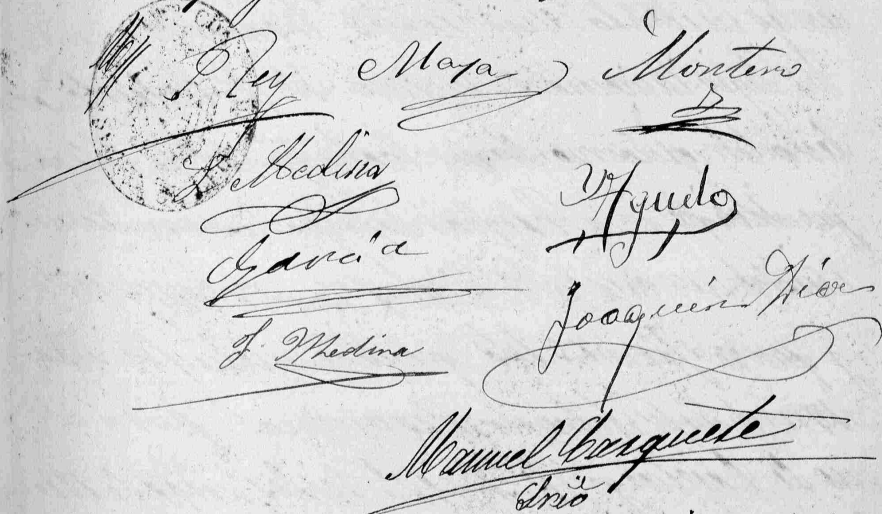 Rey Maya Montero
L. Medina
Agudo
García
Joaquín Díaz
F. Medina
Manuel Casquete
Srio